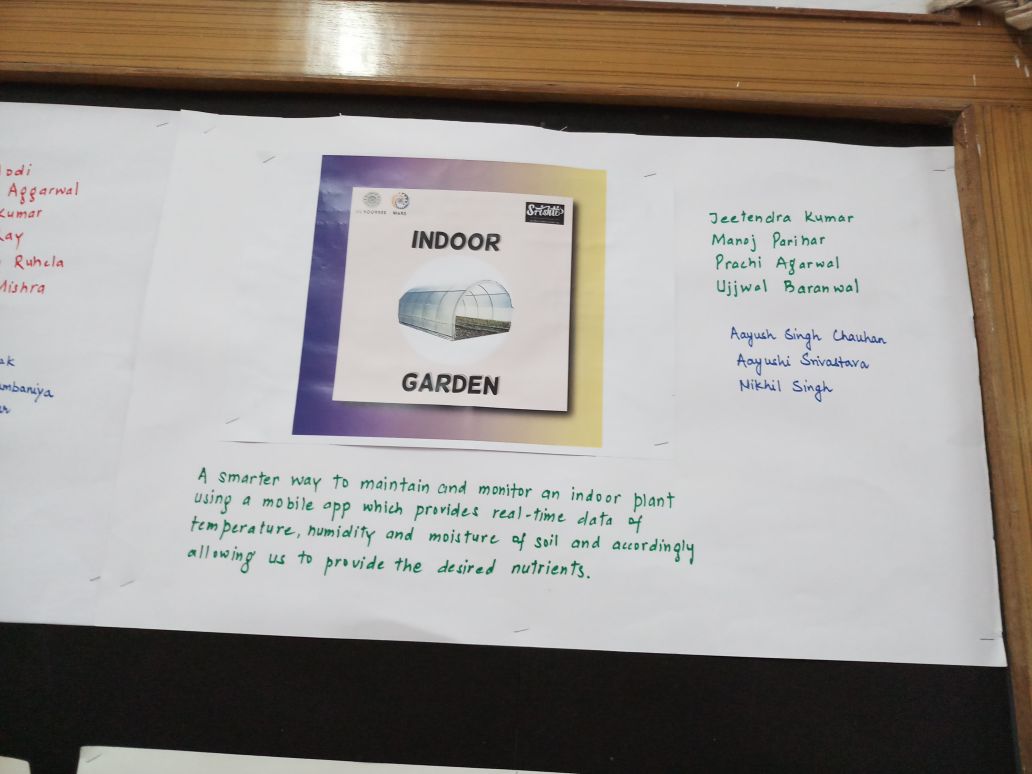 Aggarwal
Kumar
Ruhela
Mishra
Srishti
INDOOR
GARDEN
Jeetendra Kumar
Manoj Parihar
Prachi Agarwal
Ujjwal Baranwal
Aayush Singh Chauhan
Aayushi Srivastava
Nikhil Singh
A smarter way to maintain and monitor an indoor plant
using a mobile app which provides real-time data of
temperature, humidity and moisture of soil and accordingly
allowing us to provide the desired nutrients.